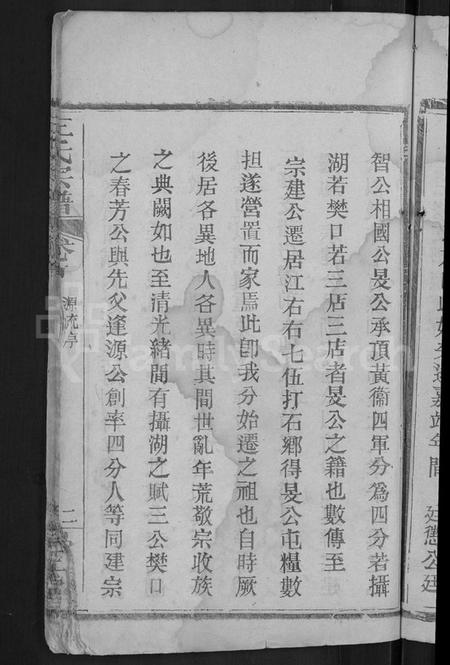 智公相國公旻公承頂黃衞四軍分爲四分若攝
湖若樊口若三店三店者旻公之籍也數傳至
宗建公遷居江右右七伍打石鄉得旻公屯糧數
担遂營置而家焉此卽我分始遷之祖也自時厥
後居各異地人各異時其間世亂年荒敬宗收族
之典闕如也至清光緒間有攝湖之賦三公樊口
之春芳公與先父逢源公創率四分人等同建宗
王氏宗譜
卷首
源流序
二
FamilySearch